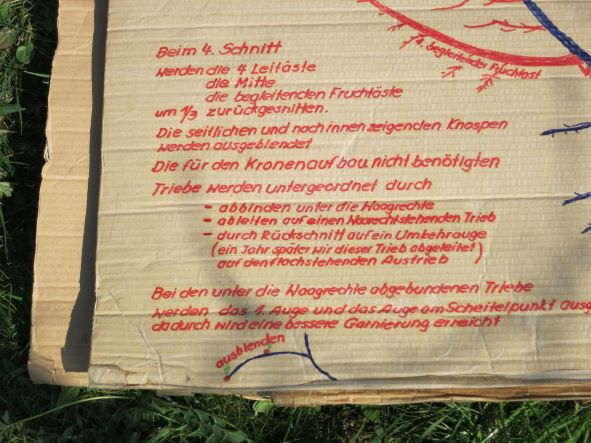 1. begleitender Fruchtast
Beim 4. Schnitt
werden die 4 Leitäste
die Mitte
die begleitenden Fruchtäste
um 1/3 zurückgesnitten.
Die seitlichen und nach innen zeigenden Knospen
werden ausgeblendet
Die für den Kronenaufbau nicht benötigten
Triebe werden untergeordnet durch
- abbinden unter die Waagrechte
- ableiten auf einen Waarechtstehenden Trieb
- durch Rückschnitt auf ein Umkehrauge
(ein Jahr später wir dieser Trieb abgeleitet)
auf den flachstehenden Austrieb)
Bei den unter die Waagrechte abgebundenen Triebe
werden das 1. Auge und das Auge am Scheitelpunkt
dadurch wird eine bessere Garnierung erreicht
ausblenden